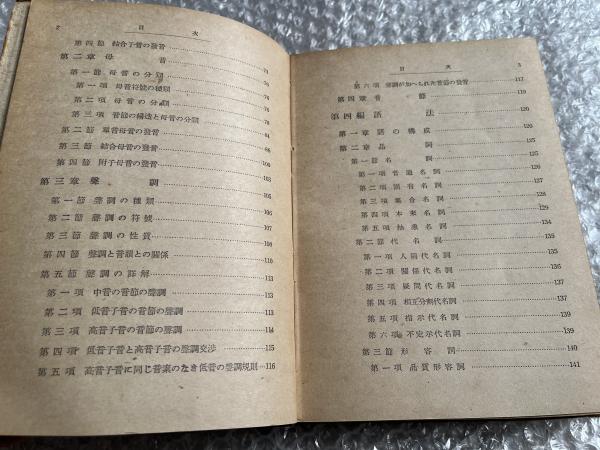 2 目次
第四節 結合子音の發音
第二章 母音 71
第一節 母音の分類
第一項 母音符號の種類
第二項 母音の分類
第三項 音節の構造と母音の分類
第二節 單母音の發音
第三節 結合母音の發音
第四節 附子母音の發音 100
第三章 聲調 103
第一節 聲調の種類 105
第二節 聲調の符號 106
第三節 聲調の性質 107
第四節 聲調と音韻との關係 110
第五節 聲調の詳解 112
第一項 中音の音節の聲調 113
第二項 低音子音の音節の聲調 113
第三項 高音子音の音節の聲調 114
第四項 低音子音と高音子音の聲調交渉 115
第五項 高音子音に同じ音素のなき低音の聲調規則 116
目次 3
第六項 聲調が加へられた音節の發音 117
第四章 音節 119
第四編 語法 120
第一章 語の構成 120
第二章 品詞 125
第一節 名詞 126
第一項 普通名詞 126
第二項 固有名詞 127
第三項 集合名詞 126
第四項 本來名詞 129
第五項 抽象名詞 134
第二節 代名詞 135
第一項 人稱代名詞 135
第二項 關係代名詞 136
第三項 疑問代名詞 138
第四項 相互分割代名詞 138
第五項 指示代名詞 139
第六項 不定示代名詞 139
第三節 形容詞 140
第一項 品質形容詞 141